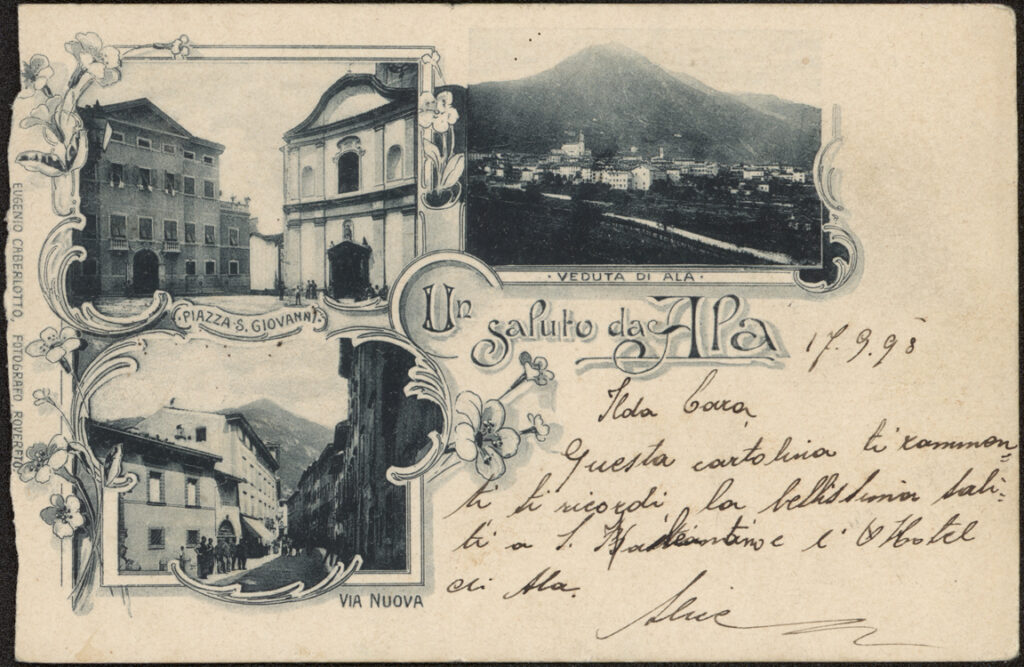 EUGENIO CABERLOTTO, FOTOGRAFO ROVERETO
PIAZZA S. GIOVANNI
· VEDUTA DI ALA ·
Un saluto da Ala
17.9.98
Ilda Cara,
Questa cartolina ti rammen-
ti ti ricordi la bellissima sali-
ti a S. e l'Hotel
di Ala.
Alice
VIA NUOVA